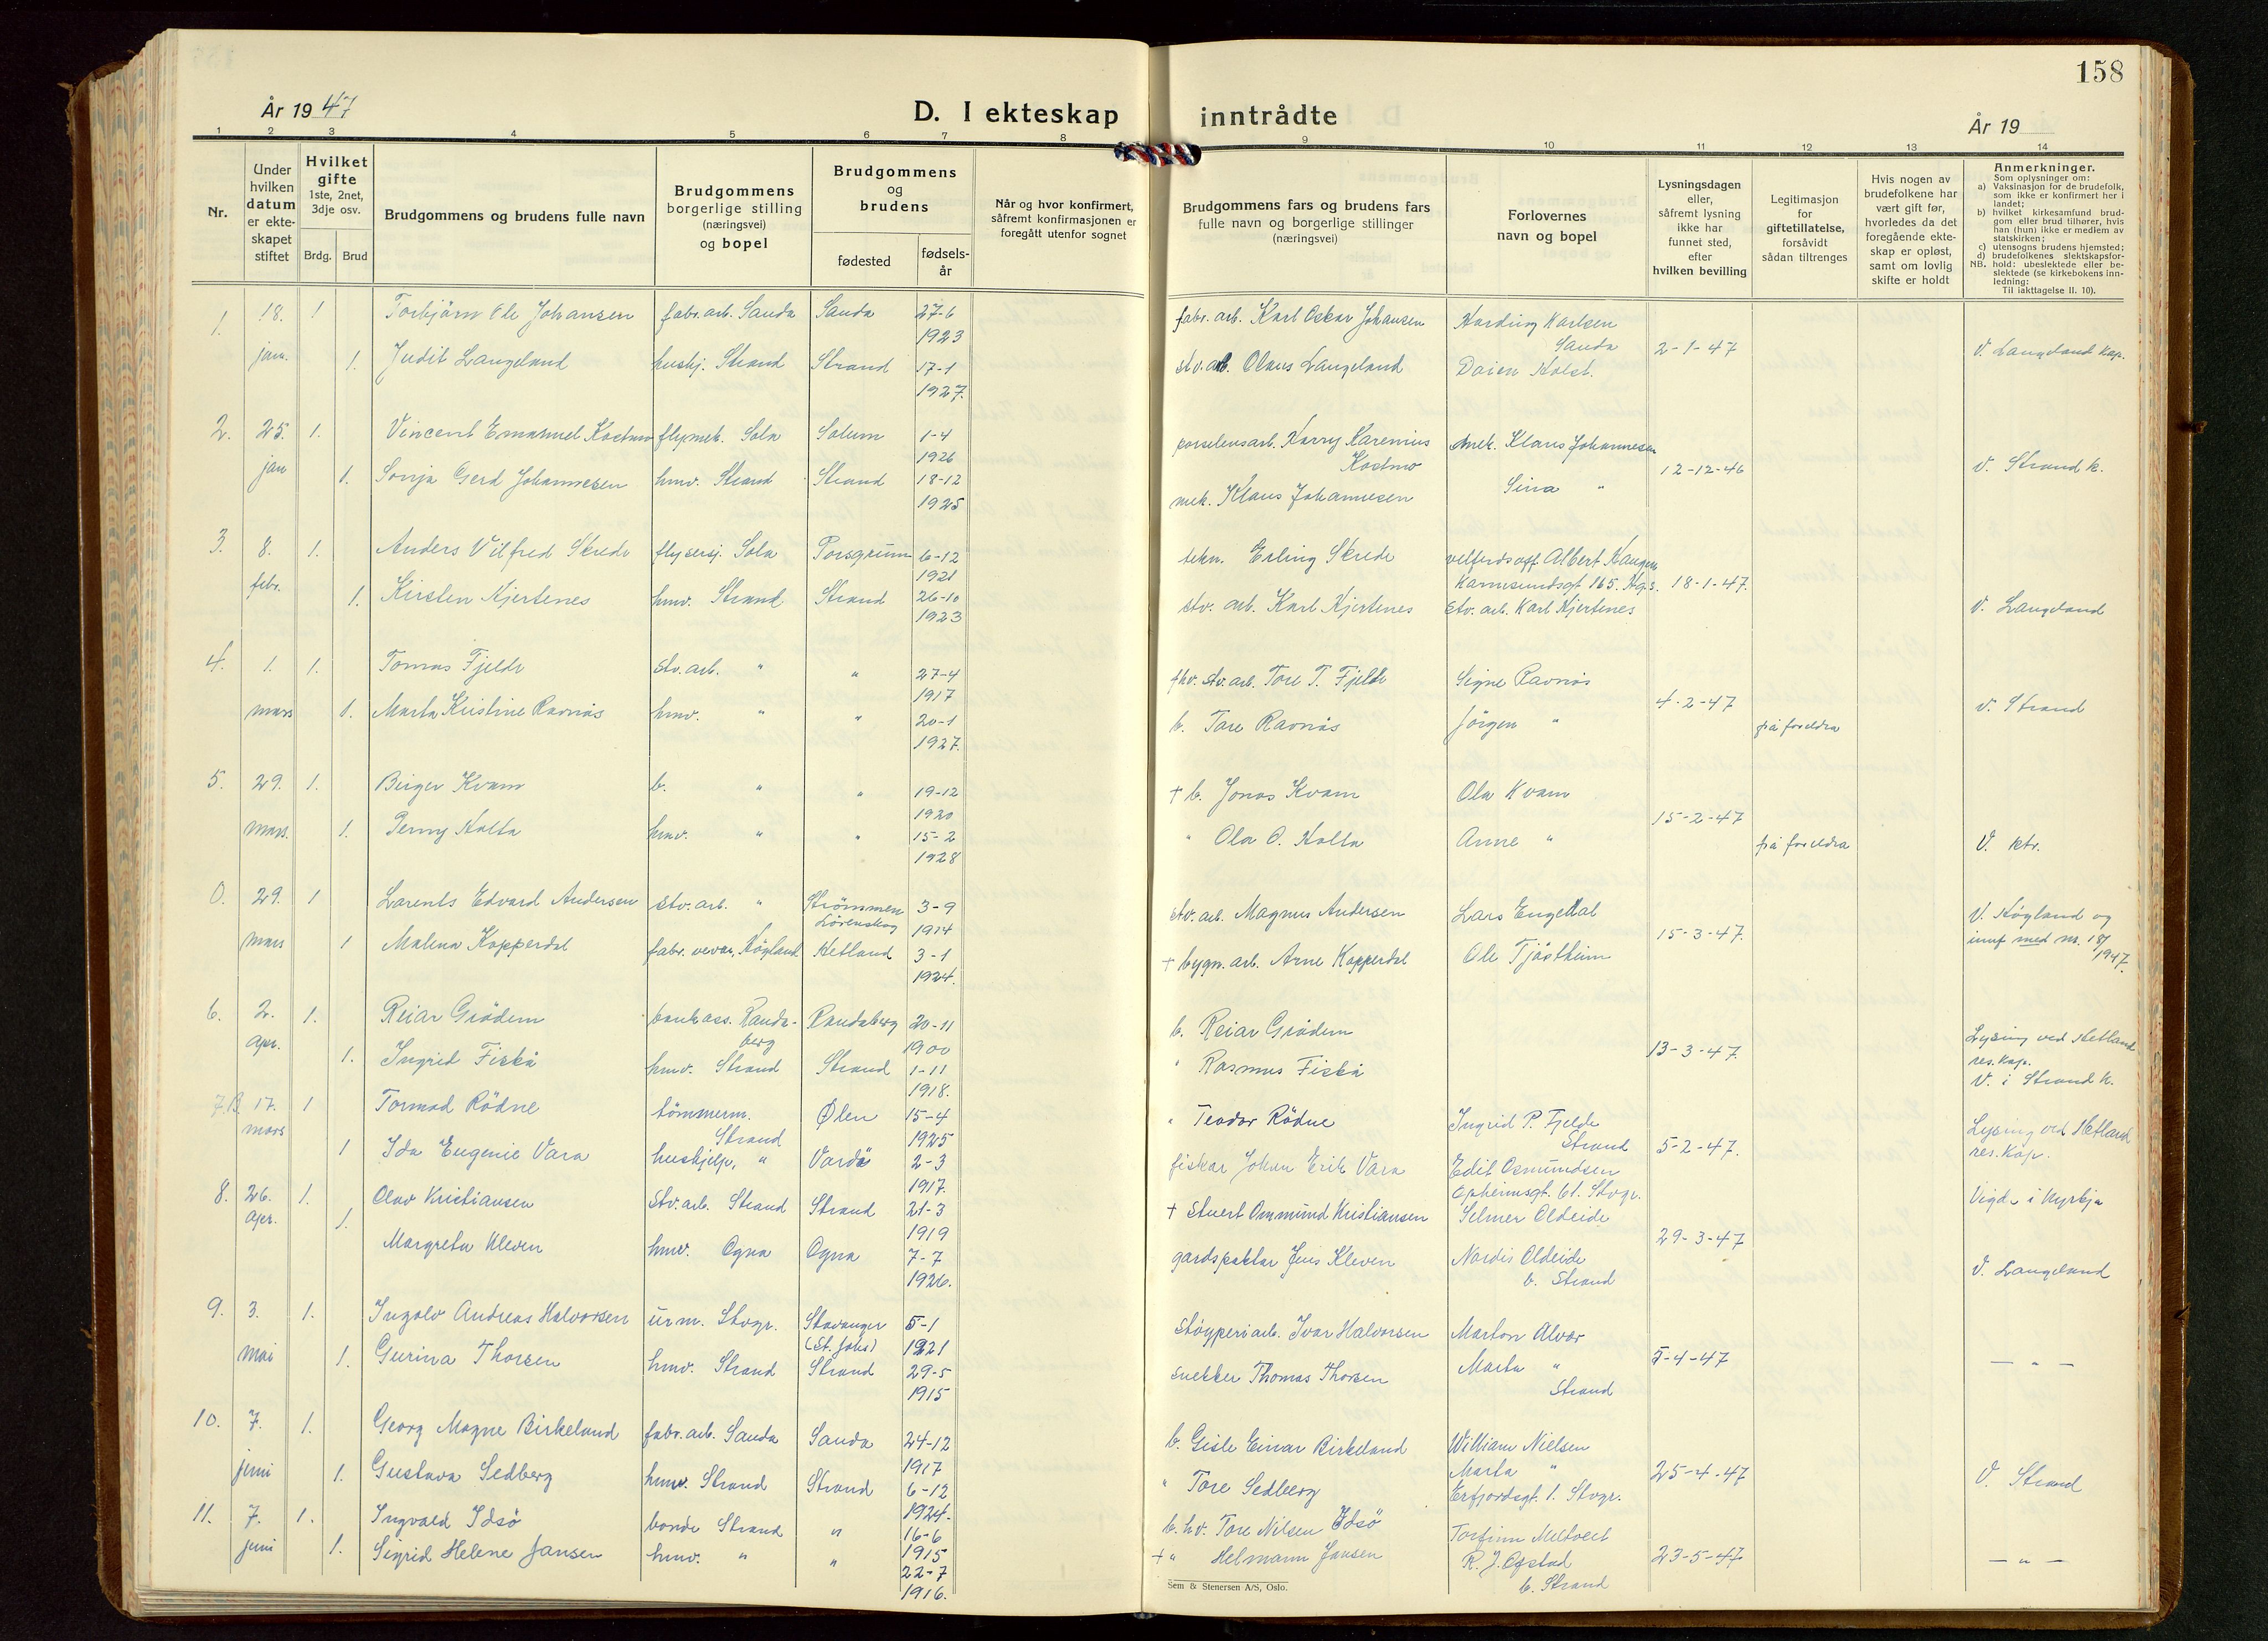 158
År 1947
D. I ekteskap inntrådte
År 19
1 2 3 4 5 6 7 8 9 10 11 12 13 14
Nr.
Under hvilken datum er ekteskapet stiftet
Hvilket gifte 1ste, 2net, 3dje osv.
Brdg. Brud
Brudgommens og brudens fulle navn
Brudgommens borgerlige stilling (næringsvei) og bopel
Brudgommens og brudens
fødested
fødsels-år
Når og hvor konfirmert, såfremt konfirmasjonen er foregått utenfor sognet
Brudgommens fars og brudens fars fulle navn og borgerlige stillinger (næringsvei)
Forlovernes navn og bopel
Lysningsdagen eller, såfremt lysning ikke har funnet sted, efter hvilken bevilling
Legitimasjon for giftetillatelse, forsåvidt sådan tiltrenges
Hvis nogen av brudefolkene har vært gift før, hvorledes da det foregående ekteskap er opløst, samt om lovlig skifte er holdt
Anmerkninger.
Som oplysninger om:
a) Vaksinasjon for de brudefolk, som ikke er konfirmert her i landet;
b) hvilket kirkesamfund brudgom eller brud tilhører, hvis han (hun) ikke er medlem av statskirken;
c) utensogns brudens hjemsted;
d) brudefolkenes slektskapsforhold: ubeslektede eller beslektede (se kirkebokens innledning:
NB. Til iakttagelse II. 10).
1. 18. 1 Torbjørn Ole Johansen fabr. arb. Sauda Sauda 27-6 1923 fabr. arb. Karl Oskar Johansen Harding Karlsen Sauda
jan. 1. Judit Langeland hushj. Strand Strand 17-1 1927. stv. arb. Olaus Langeland Daien Holst. 2-1-47 V. Langeland kap.
2. 25. 1. Vincent Emanuel Kostmo flymek. Sola Solum 1-4 1926 porselensarb. Harry Karenius Kostmo mek. Klaus Johannesen
jan 1. Sonja Gerd Johannesen hmv. Strand Strand 18-12 1925 mek. Klaus Johannesen Sina " 12-12-46 V. Strand k.
3. 8. 1. Anders Vilfred Skrede flysersj. Sola Porsgrunn 6-12 1921 tekn. Erling Skrede velferdsoff. Albert Haugen Karmsundsgt 165. Hgs. 18-1-47.
febr. 1. Kirsten Hjertenes hmv. Strand Strand 26-10 1923 stv. arb. Karl Hjertenes stv. arb. Karl Hjertenes V. Langeland
4. 1. 1. Tomas Fjelde stv. arb. " " 27-4 1917 fhv. stv. arb. Tore T. Fjelde Signe Ravnås
mars 1. Marta Kristine Ravnås hmv. " " 20-1 1927. b. Tore Ravnås Jörgen " 4-2-47 på foreldra V. Strand
5. 29. 1. Birger Kvam b. " " 19-12 1920 + b. Jonas Kvam Ola Kvam
mars. 1. Jenny Holta hmv. " " 15-2 1928 " Ola O. Holta Anne " 15-2-47 på foreldra V. ktr.
0. 29. 1 Larents Edvard Andersen stv. arb. " Strømmen Lörenskog 3-9 1914 stv. arb. Magnus Andersen Lars Engedal V. Høgland og
mars 1 Malena Kopperdal fabr. vevar, Högland Hetland 3-1 1924. + bygn. arb. Arne Kopperdal Ole Tjöstheim 15-3-47. innf med nr. 18/1947.
6. 2. 1. Reiar Grödem bankass. Randaberg Randaberg 20-11 1900 b. Reiar Grödem Lysing ved Hetland res. kap.
apr. 1. Ingrid Fiskå hmv. Strand Strand 1-11 1918. " Rasmus Fiskå 13-3-47. V. i Strand k.
7. 17. 1 Tormod Rödne tömmerm. Strand Ølen 15-4 1925 " Teodor Rödne Ingrid P. Fjelde Strand Lysing ved Hetland res. kap.
mars 1 Ida Eugenie Vara hushjelp, " Vardö 2-3 1917. fiskar Johan Erik Vara Edit Osmundsen Opheimsgt. 61. Stvgr. 5-2-47. Vigde i kyrkja
8. 26. 1. Olav Kristiansen stv. arb. Strand Strand 21-3 1919 + Stuert Ommund Kristiansen Selmer Oldeide
apr. 1. Margreta Kleven hmv. Ogna Ogna 7-7 1926. gardspaktar Jens Kleven Nordis Oldeide b. Strand 29-3-47 V. Langeland
9. 3. 1. Ingolv Andreas Halvorsen urm. Stvgr. Stavanger (St. Johs) 5-1 1921 støyperiarb. Ivar Halvorsen Marton Alvær
mai 1. Gurina Thorsen hmv. Strand Strand 29-5 1915 snekker Thomas Thorsen Marta " Strand 5-4-47 — " —
10. 7. 1. Georg Magne Birkeland fabr. arb. Sauda Sauda 24-12 1917 b. Gisle Einar Birkeland William Nielsen
juni 1. Gustava Sedberg hmv. Strand Strand 6-12 1924. " Tore Sedberg Marta " Erfjordsgt. 1. Stvgr. 25-4-47 V. Strand
11. 7. 1. Ingvald Idsö bonde Strand " 16-6 1915 b. hv. Tore Nilsen Idsö Torfinn Meltveit
juni 1. Sigrid Helene Jansen hmv. " " 22-7 1916. + " Helmann Jansen R. J. Ofstad b. Strand 23-5-47 — " —
Sem & Stenersen A/S, Oslo.